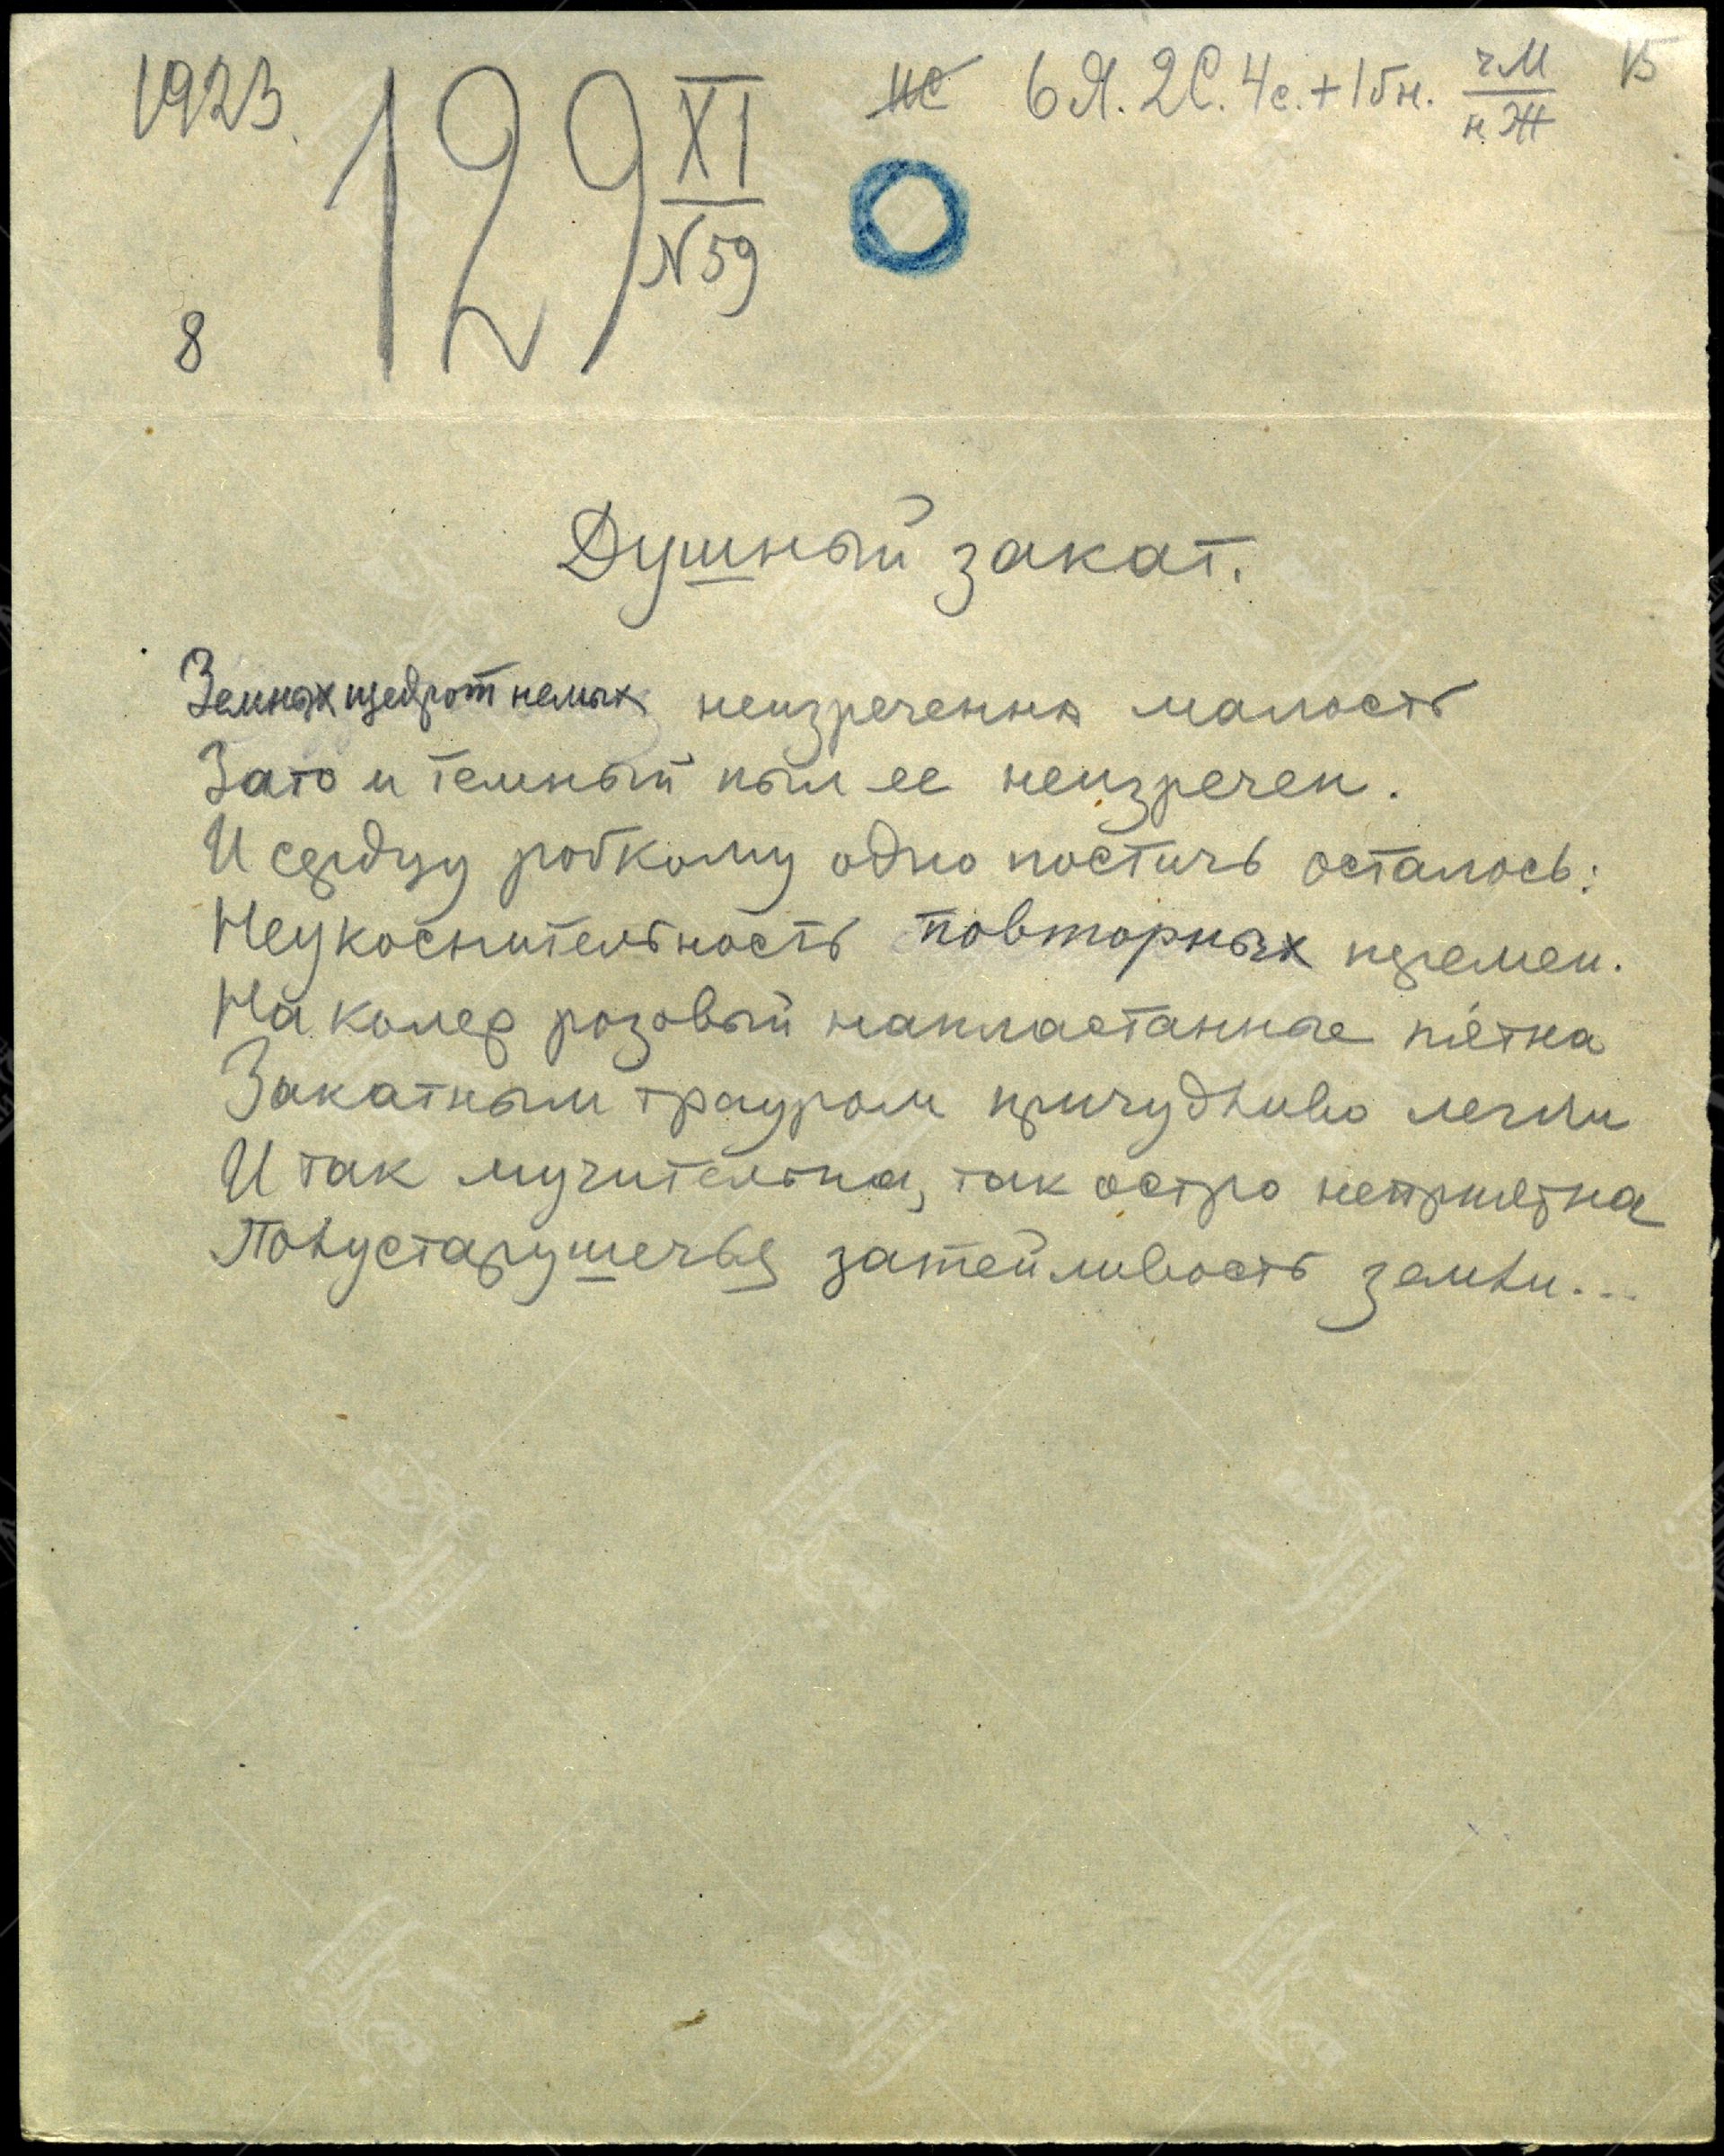 1923.
129 XI
N 59
НС 6Я. 2С. 4с. + 1бн. чМ
нЖ
15
8
Душный закат.
Земных щедрот немых неизреченна малость
Зато и темный пыл ее неизречен.
И сердцу робкому одно постичь осталось:
Неукоснительность повторных перемен.
На колер розовый напластанные пятна
Закатным трауром причудливо легли
И так мучительна, так остро неприятна
Полустарушечья затейливость земли...